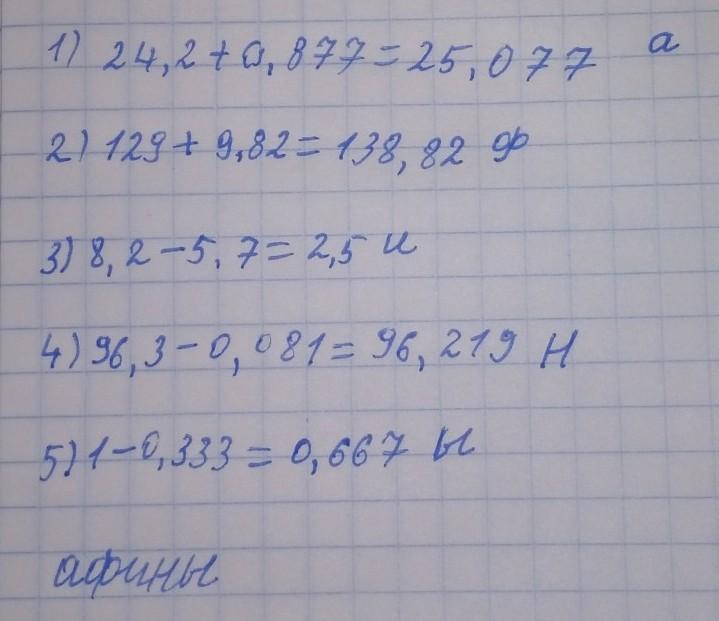 1) 24,2+0,877=25,077 а
2) 129+9,82=138,82 ф
3) 8,2-5,7=2,5 и
4) 96,3-0,081=96,219 н
5) 1-0,333=0,667 ы
афины